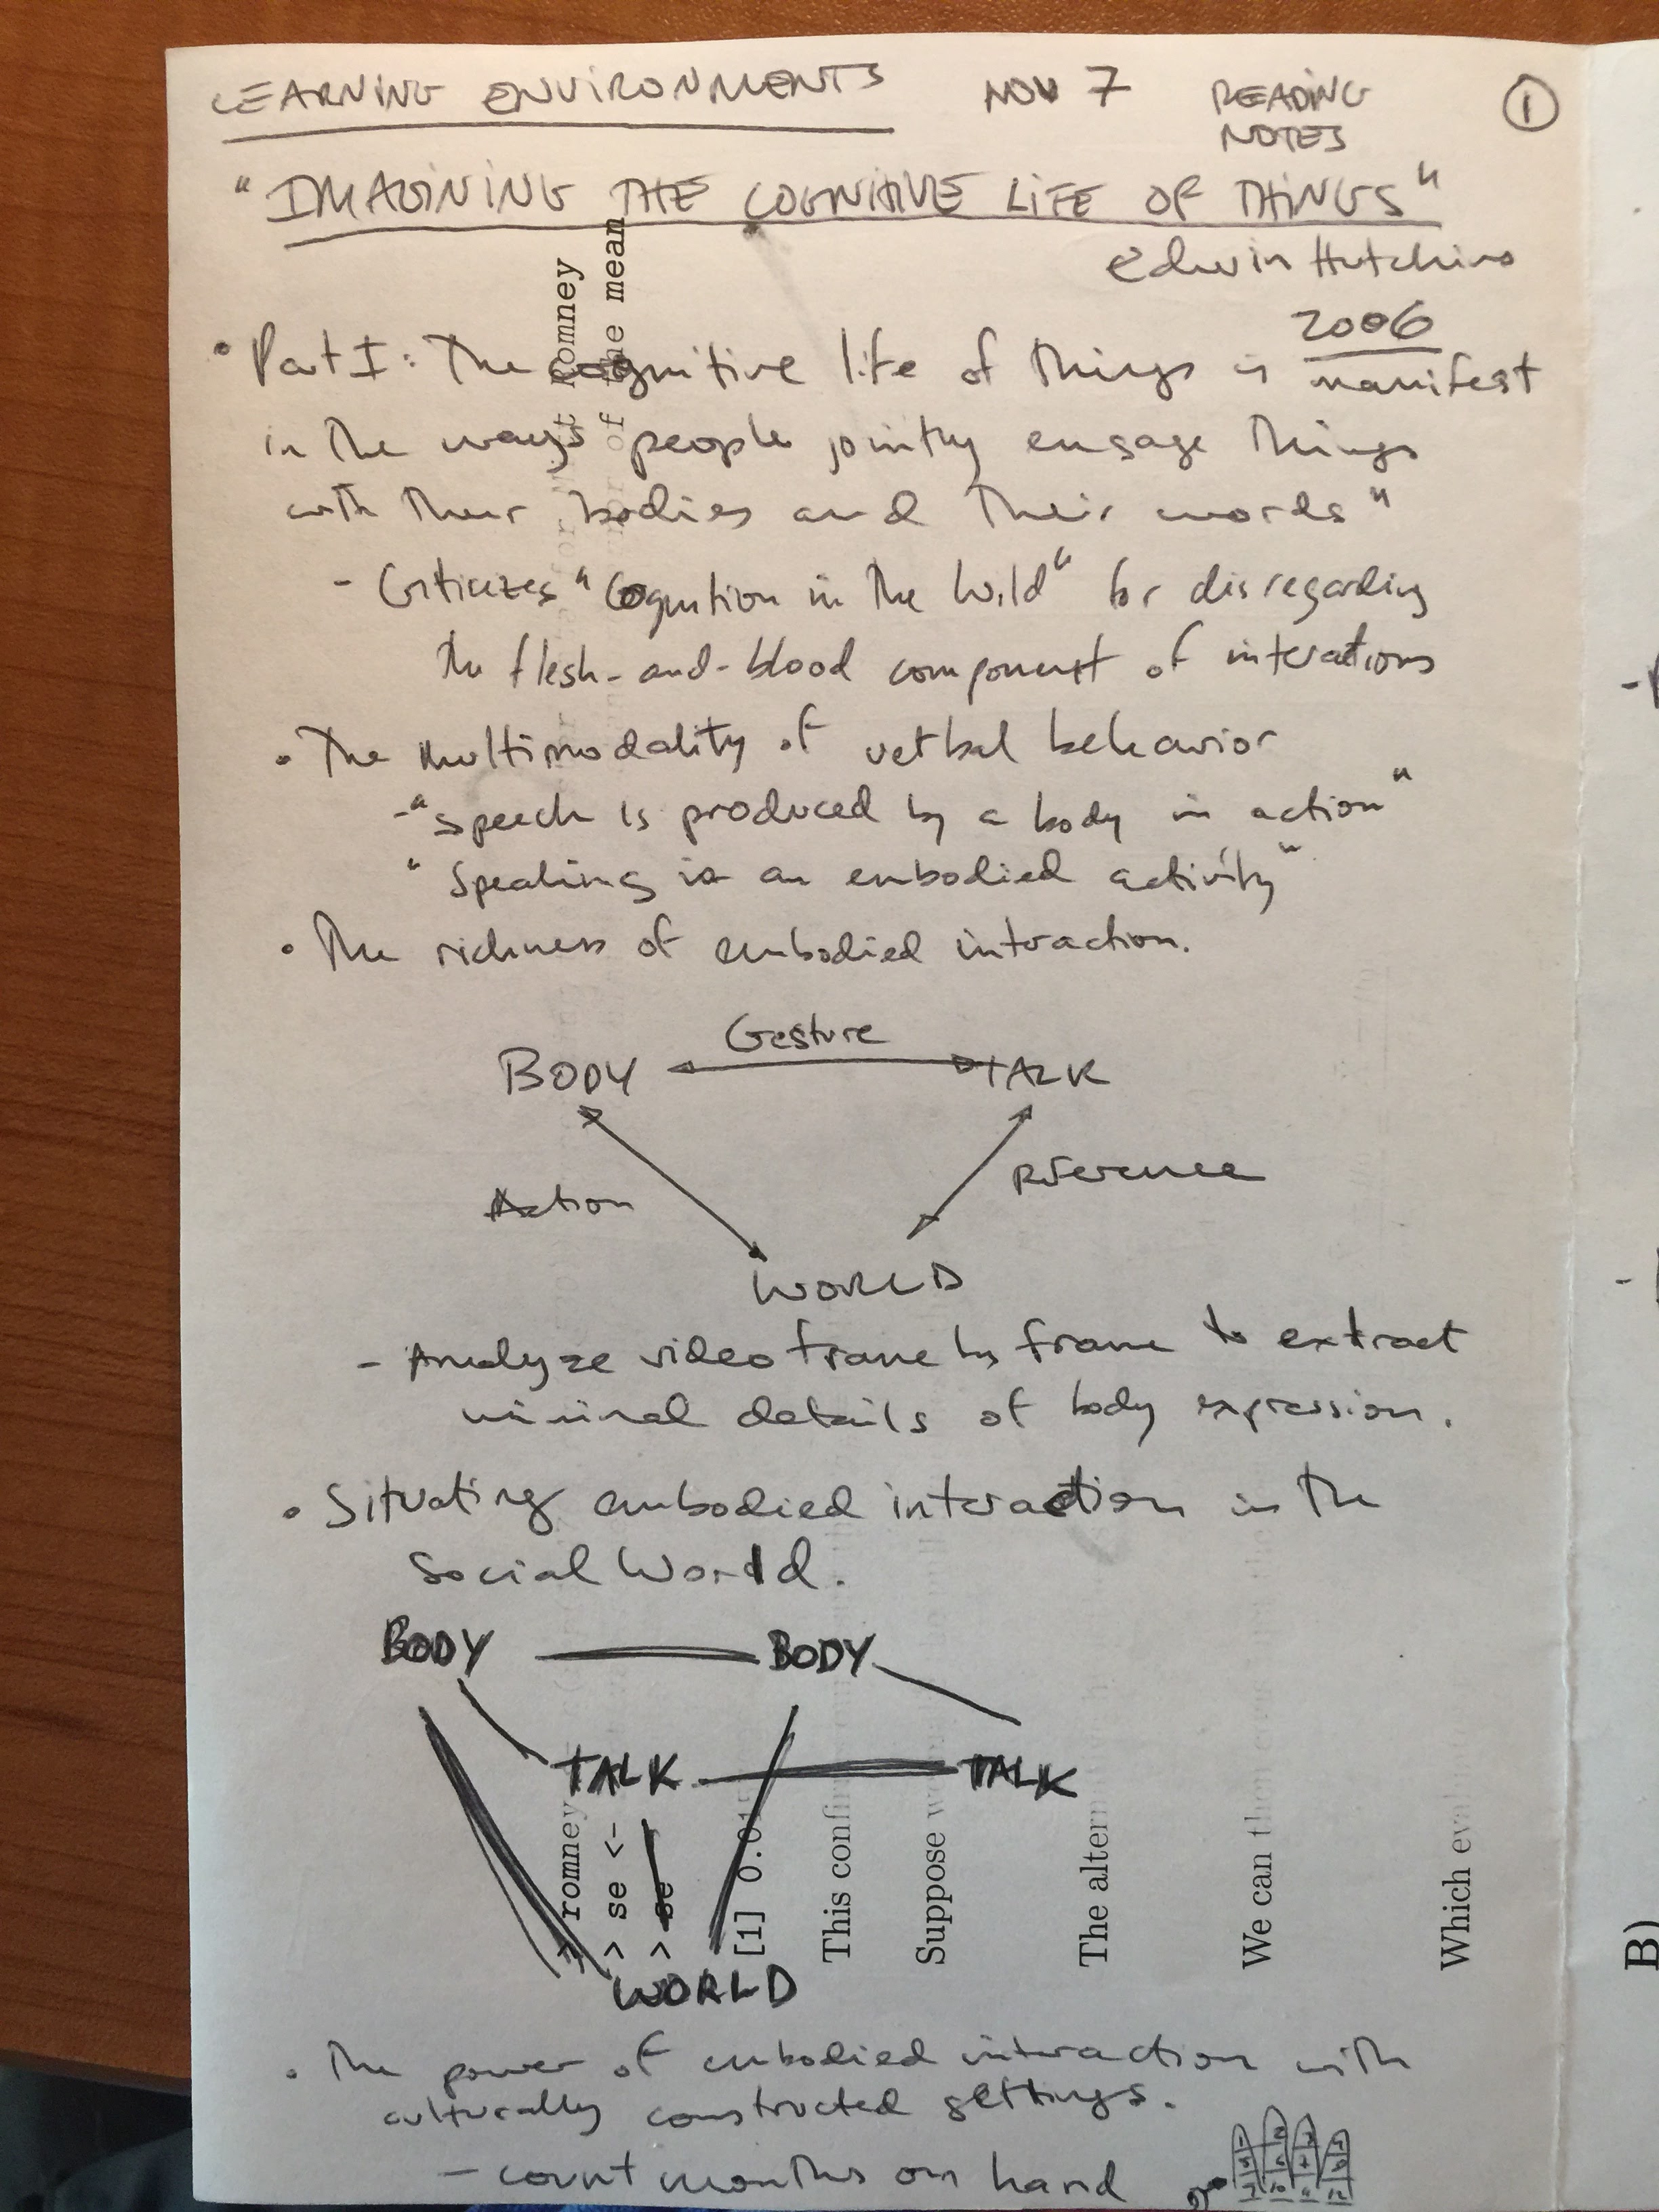 LEARNING ENVIRONMENTS NOV 7 READING NOTES 1
"IMAGINING THE COGNITIVE LIFE OF THINGS"
Edwin Hutchins
2006
• Part I: The cognitive life of things is manifest
in the ways people jointly engage things
with their bodies and their words"
- Criticizes "Cognition in the Wild" for disregarding
the flesh-and-blood component of interations
• The Multimodality of verbal behavior
- "Speech is produced by a body in action"
"Speaking is an embodied activity"
• The richness of embodied interaction.
Gesture
BODY TALK
Action Reference
WORLD
- Analyze video frame by frame to extract
minimal details of body expression.
• Situating embodied interaction in the
Social World.
BODY BODY
TALK TALK
WORLD
• The power of embodied interaction with
culturally constructed settings.
- count months on hand
Romney
the mean
of
> romney
> se <-
> se
[1] 0.01
This confi
Suppose w
The altern
We can th
Which eval
B)